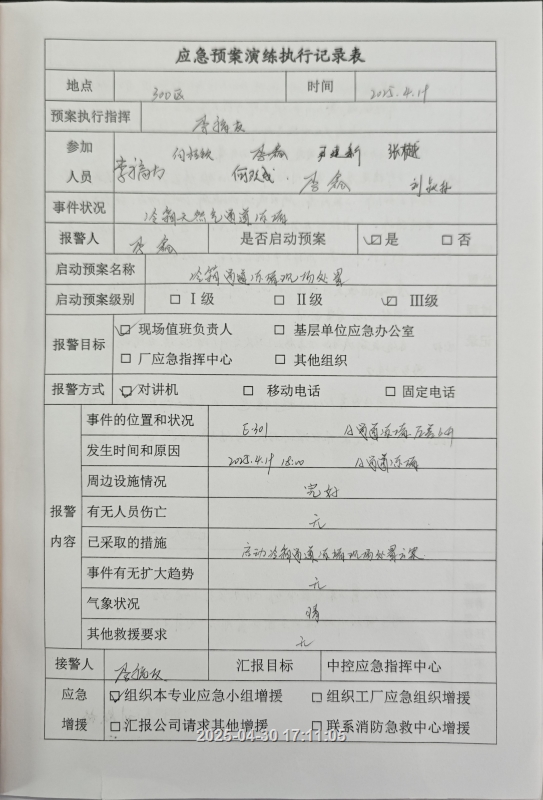 应急预案演练执行记录表
地点 300区 时间 2025.4.19
预案执行指挥
参加人员 李鑫 李鑫
事件状况 冷箱天然气通道冻堵
报警人 李鑫 是否启动预案 ☑是 □否
启动预案名称 冷箱通道冻堵现场处置
启动预案级别 □Ⅰ级 □Ⅱ级 ☑Ⅲ级
报警目标 ☑现场值班负责人 □基层单位应急办公室
□厂应急指挥中心 □其他组织
报警方式 ☑对讲机 □移动电话 □固定电话
报警内容
事件的位置和状况 E-301 A通道冻堵 压差上升
发生时间和原因 2025.4.19 15:00 A通道冻堵
周边设施情况 完好
有无人员伤亡 无
已采取的措施 启动冷箱通道冻堵现场处置方案
事件有无扩大趋势 无
气象状况 晴
其他救援要求 无
接警人 汇报目标 中控应急指挥中心
应急增援 ☑组织本专业应急小组增援 □组织工厂应急组织增援
□汇报公司请求其他增援 □联系消防急救中心增援
2025-04-30 17:11:05